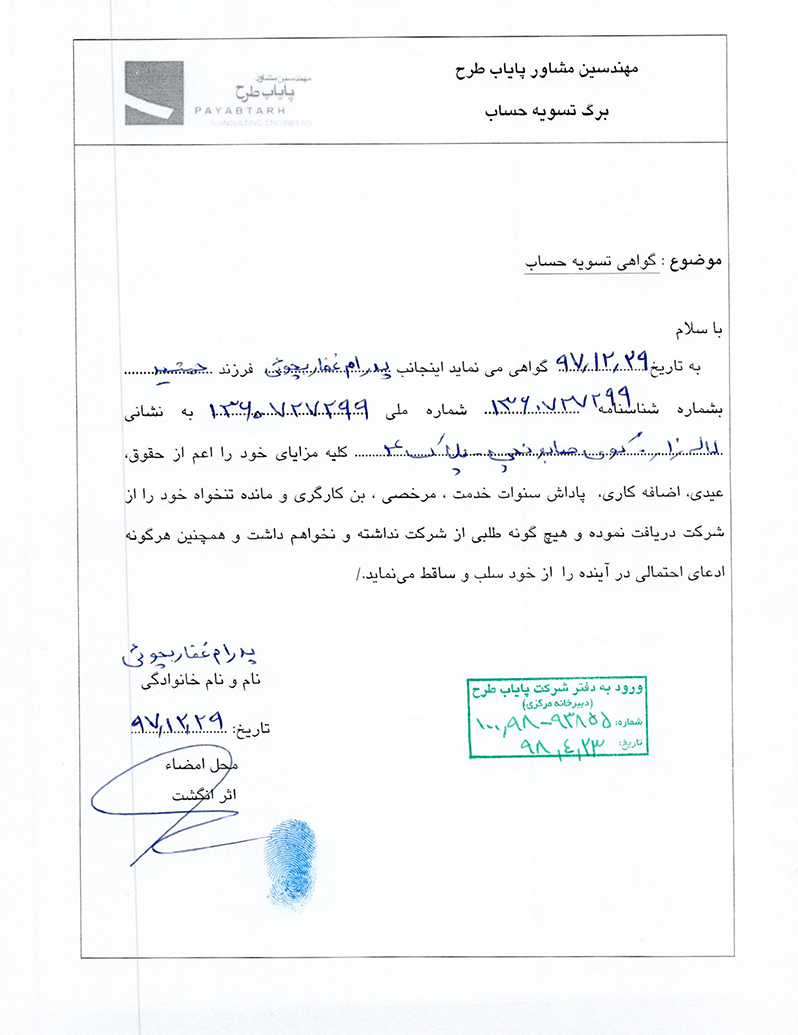 مهندسین مشاور پایاب طرح
برگ تسویه حساب
مهندسین مشاور
پایاب طرح
PAYABTARH
CONSULTING ENGINEERS
موضوع : گواهی تسویه حساب
با سلام
به تاریخ ۹۷,۱۲,۲۹ گواهی می نماید اینجانب پدرام غفاریچوئی فرزند جمشید
بشماره شناسنامه ۱۳۶۰۷۲۷۲۹۹ شماره ملی ۱۳۶۰۷۲۷۲۹۹ به نشانی
لاله زار کوی صابونچی پلاک کلیه مزایای خود را اعم از حقوق،
عیدی، اضافه کاری، پاداش سنوات خدمت ، مرخصی ، بن کارگری و مانده تنخواه خود را از
شرکت دریافت نموده و هیچ گونه طلبی از شرکت نداشته و نخواهم داشت و همچنین هرگونه
ادعای احتمالی در آینده را از خود سلب و ساقط می‌نماید./
پدرام غفاریچوئی
نام و نام خانوادگی
تاریخ: ۹۷,۱۲,۲۹
محل امضاء
اثر انگشت
ورود به دفتر شرکت پایاب طرح
(دبیرخانه مرکزی)
شماره: ۱۰۰,۹۸-۹۳۸۵۵
تاریخ: ۹۸,۴,۲۳